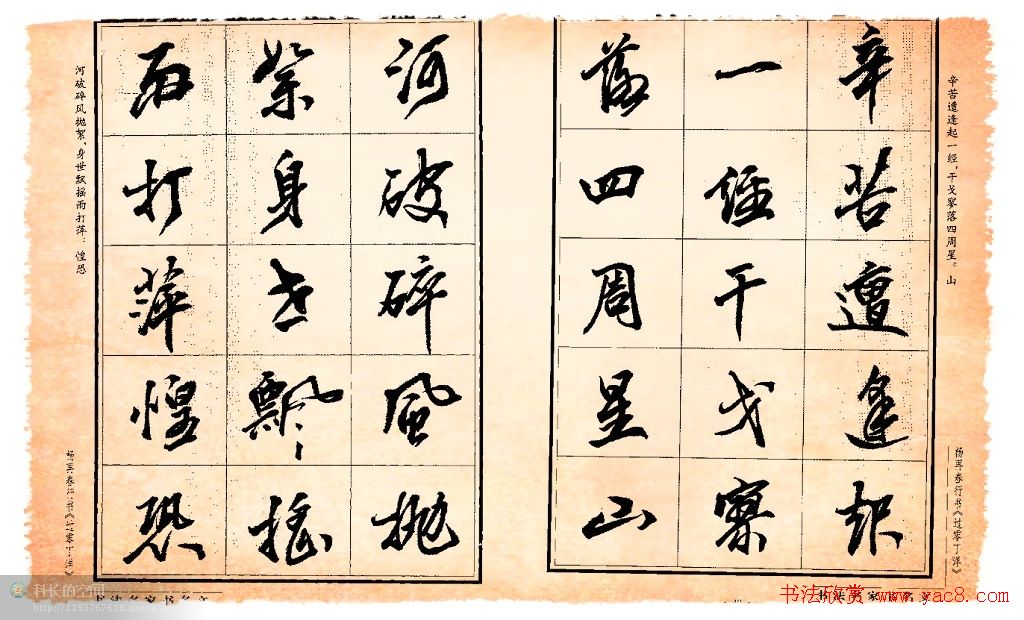 辛苦遭逢起
一经干戈寥
落四周星山
河破碎风抛
絮身世飘摇
雨打萍惶恐
辛苦遭逢起一经，干戈寥落四周星。山
杨再春行书《过零丁洋》
河破碎风抛絮，身世飘摇雨打萍。惶恐
杨再春行书《过零丁洋》
科长的空间
http://1193767618.qzone.
书法名家书名文
书法欣赏 www.yac8.com